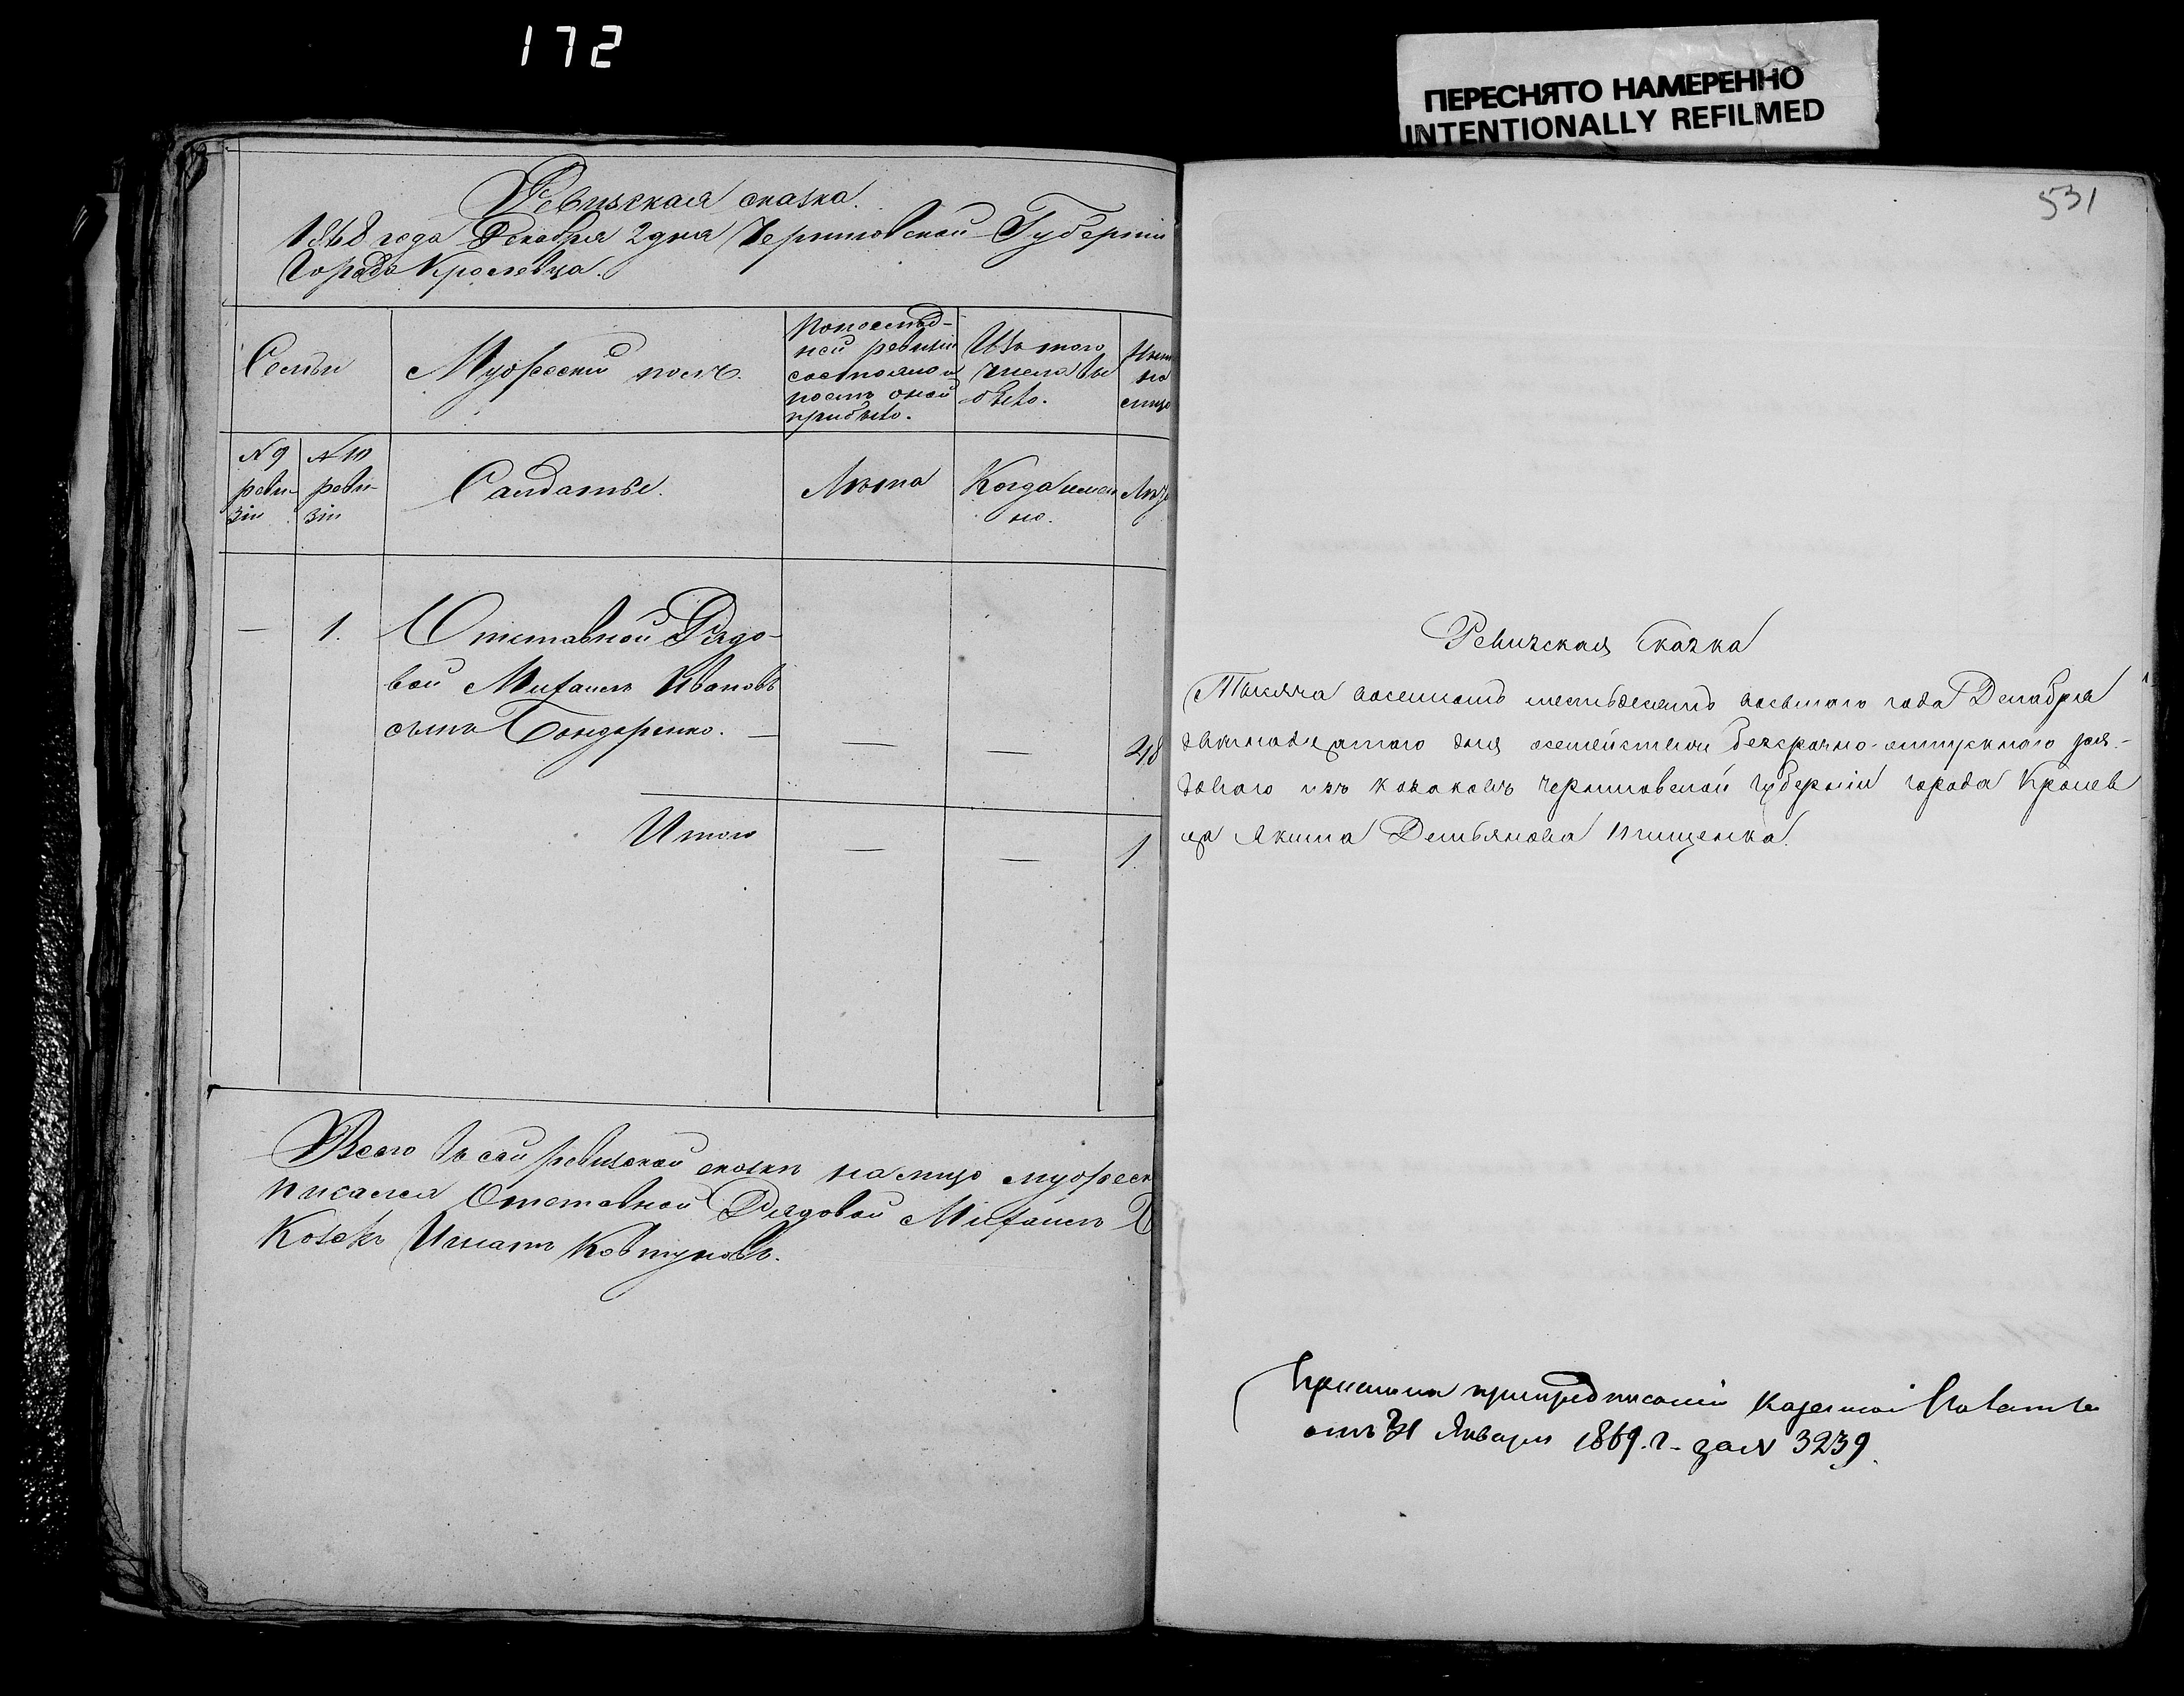 172
ПЕРЕСНЯТО НАМЕРЕННО
INTENTIONALLY REFILMED
Ревизская сказка.
1868 года Декабря 2 дня Черниговской Губерніи
Города Кролевца.
Семьи
Мужескій полъ.
По послѣд-
ней ревизіи
состояло и
послѣ оной
прибыло.
Изъ того
числа вы
было.
Нынѣ
на
лицо
№ 9
реви-
зіи
№ 10
реви-
зіи
Салдаты.
Лѣта
Когда имен
но.
Лѣта
— 1. Отставной Рядо-
вой Михаилъ Ивановъ
сынъ Бондаренко. — — — 48
Итого — — 1.
Всего въ сей ревизской сказкѣ на лицо мужеск
писался Отставной Рядовой Михаилъ
Козакъ Игнатъ Ковтуновъ.
531
Ревизская Сказка
Тысяча восемсотъ шестьдесятъ восьмого года Декабря
двенадцатого дня осемействѣ безсрочно-отпускного ря-
дового изъ козаковъ Черниговской Губерніи города Кролев
ца Якима Демьянова Пищенка.
при предписаніи Казенной Палаты
отъ 31 Января 1869. г. за № 3239.